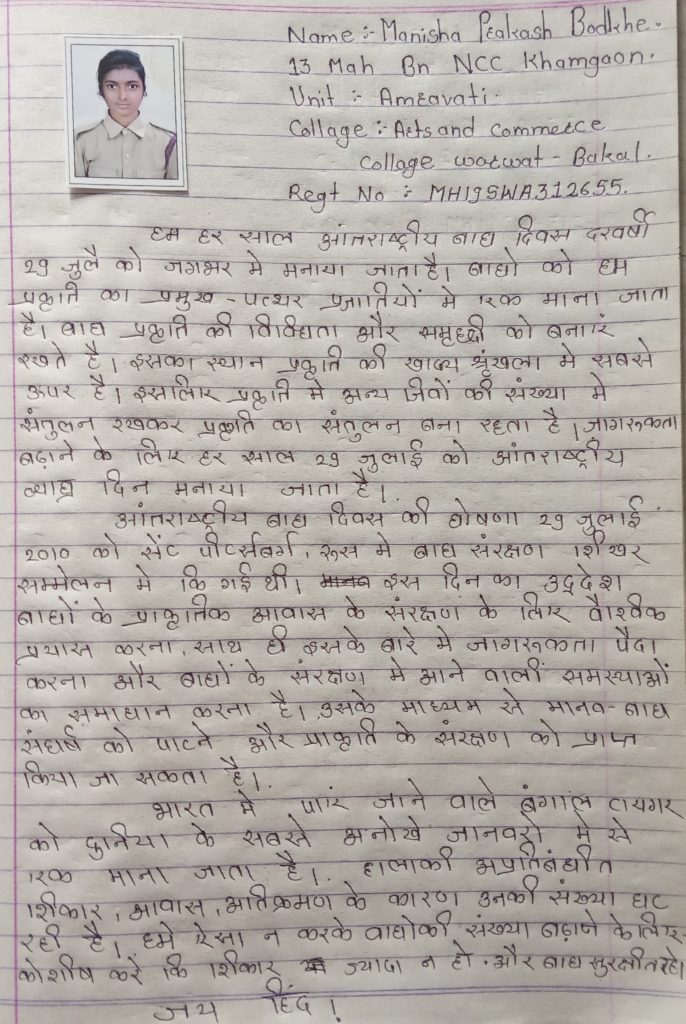 Name :- Manisha Prakash Bodkhe.
13 Mah Bn NCC Khamgaon.
Unit :- Amravati.
Collage : Arts and commerce
Collage warwat - Bakal.
Regt No : MH19SWA312655.
हम हर साल आंतराष्ट्रीय बाघ दिवस दरवर्षी
29 जुलै को जगभर मे मनाया जाता है। बाघो को हम
प्रकृति का प्रमुख - पत्थर प्रजातियों मे एक माना जाता
है। बाघ प्रकृति की विविधता और समृध्दी को बनाएं
रखते है। इसका स्थान प्रकृति की खाद्य श्रृंखला मे सबसे
ऊपर है। इसलिए प्रकृति मे अन्य जिवों की संख्या मे
संतुलन रखकर प्रकृति का संतुलन बना रहता है। जागरुकता
बढ़ाने के लिए हर साल 29 जुलाई को आंतराष्ट्रीय
व्याघ्र दिन मनाया जाता है।
आंतराष्ट्रीय बाघ दिवस की घोषणा 29 जुलाई
2010 को सेंट पीटर्सबर्ग, रुस मे बाघ संरक्षण शिखर
सम्मेलन मे कि गई थी। इस दिन का उद्देश
बाघों के प्राकृतिक आवास के संरक्षण के लिए वैश्विक
प्रयास करना, साथ ही इसके बारे मे जागरुकता पैदा
करना और बाघों के संरक्षण मे आने वालीं समस्याओं
का समाधान करता है। उसके माध्यम से मानव-बाघ
संघर्ष को पाटने और प्राकृति के संरक्षण को प्राप्त
किया जा सकता है।
भारत मे पाएं जाने वाले बंगाल टायगर
को दुनीया के सबसे अनोखे जानवरो मे से
एक माना जाता है। हालाकी अप्रतिबंधीत
शिकार, आवास, अतिक्रमण के कारण उनकी संख्या घट
रही है। हमे ऐसा न करके वाघोकी संख्या बढ़ाने के लिए
कोशीष करे कि शिकार ज्यादा न हो. और बाघ सुरक्षीत रहे।
जय हिंद !